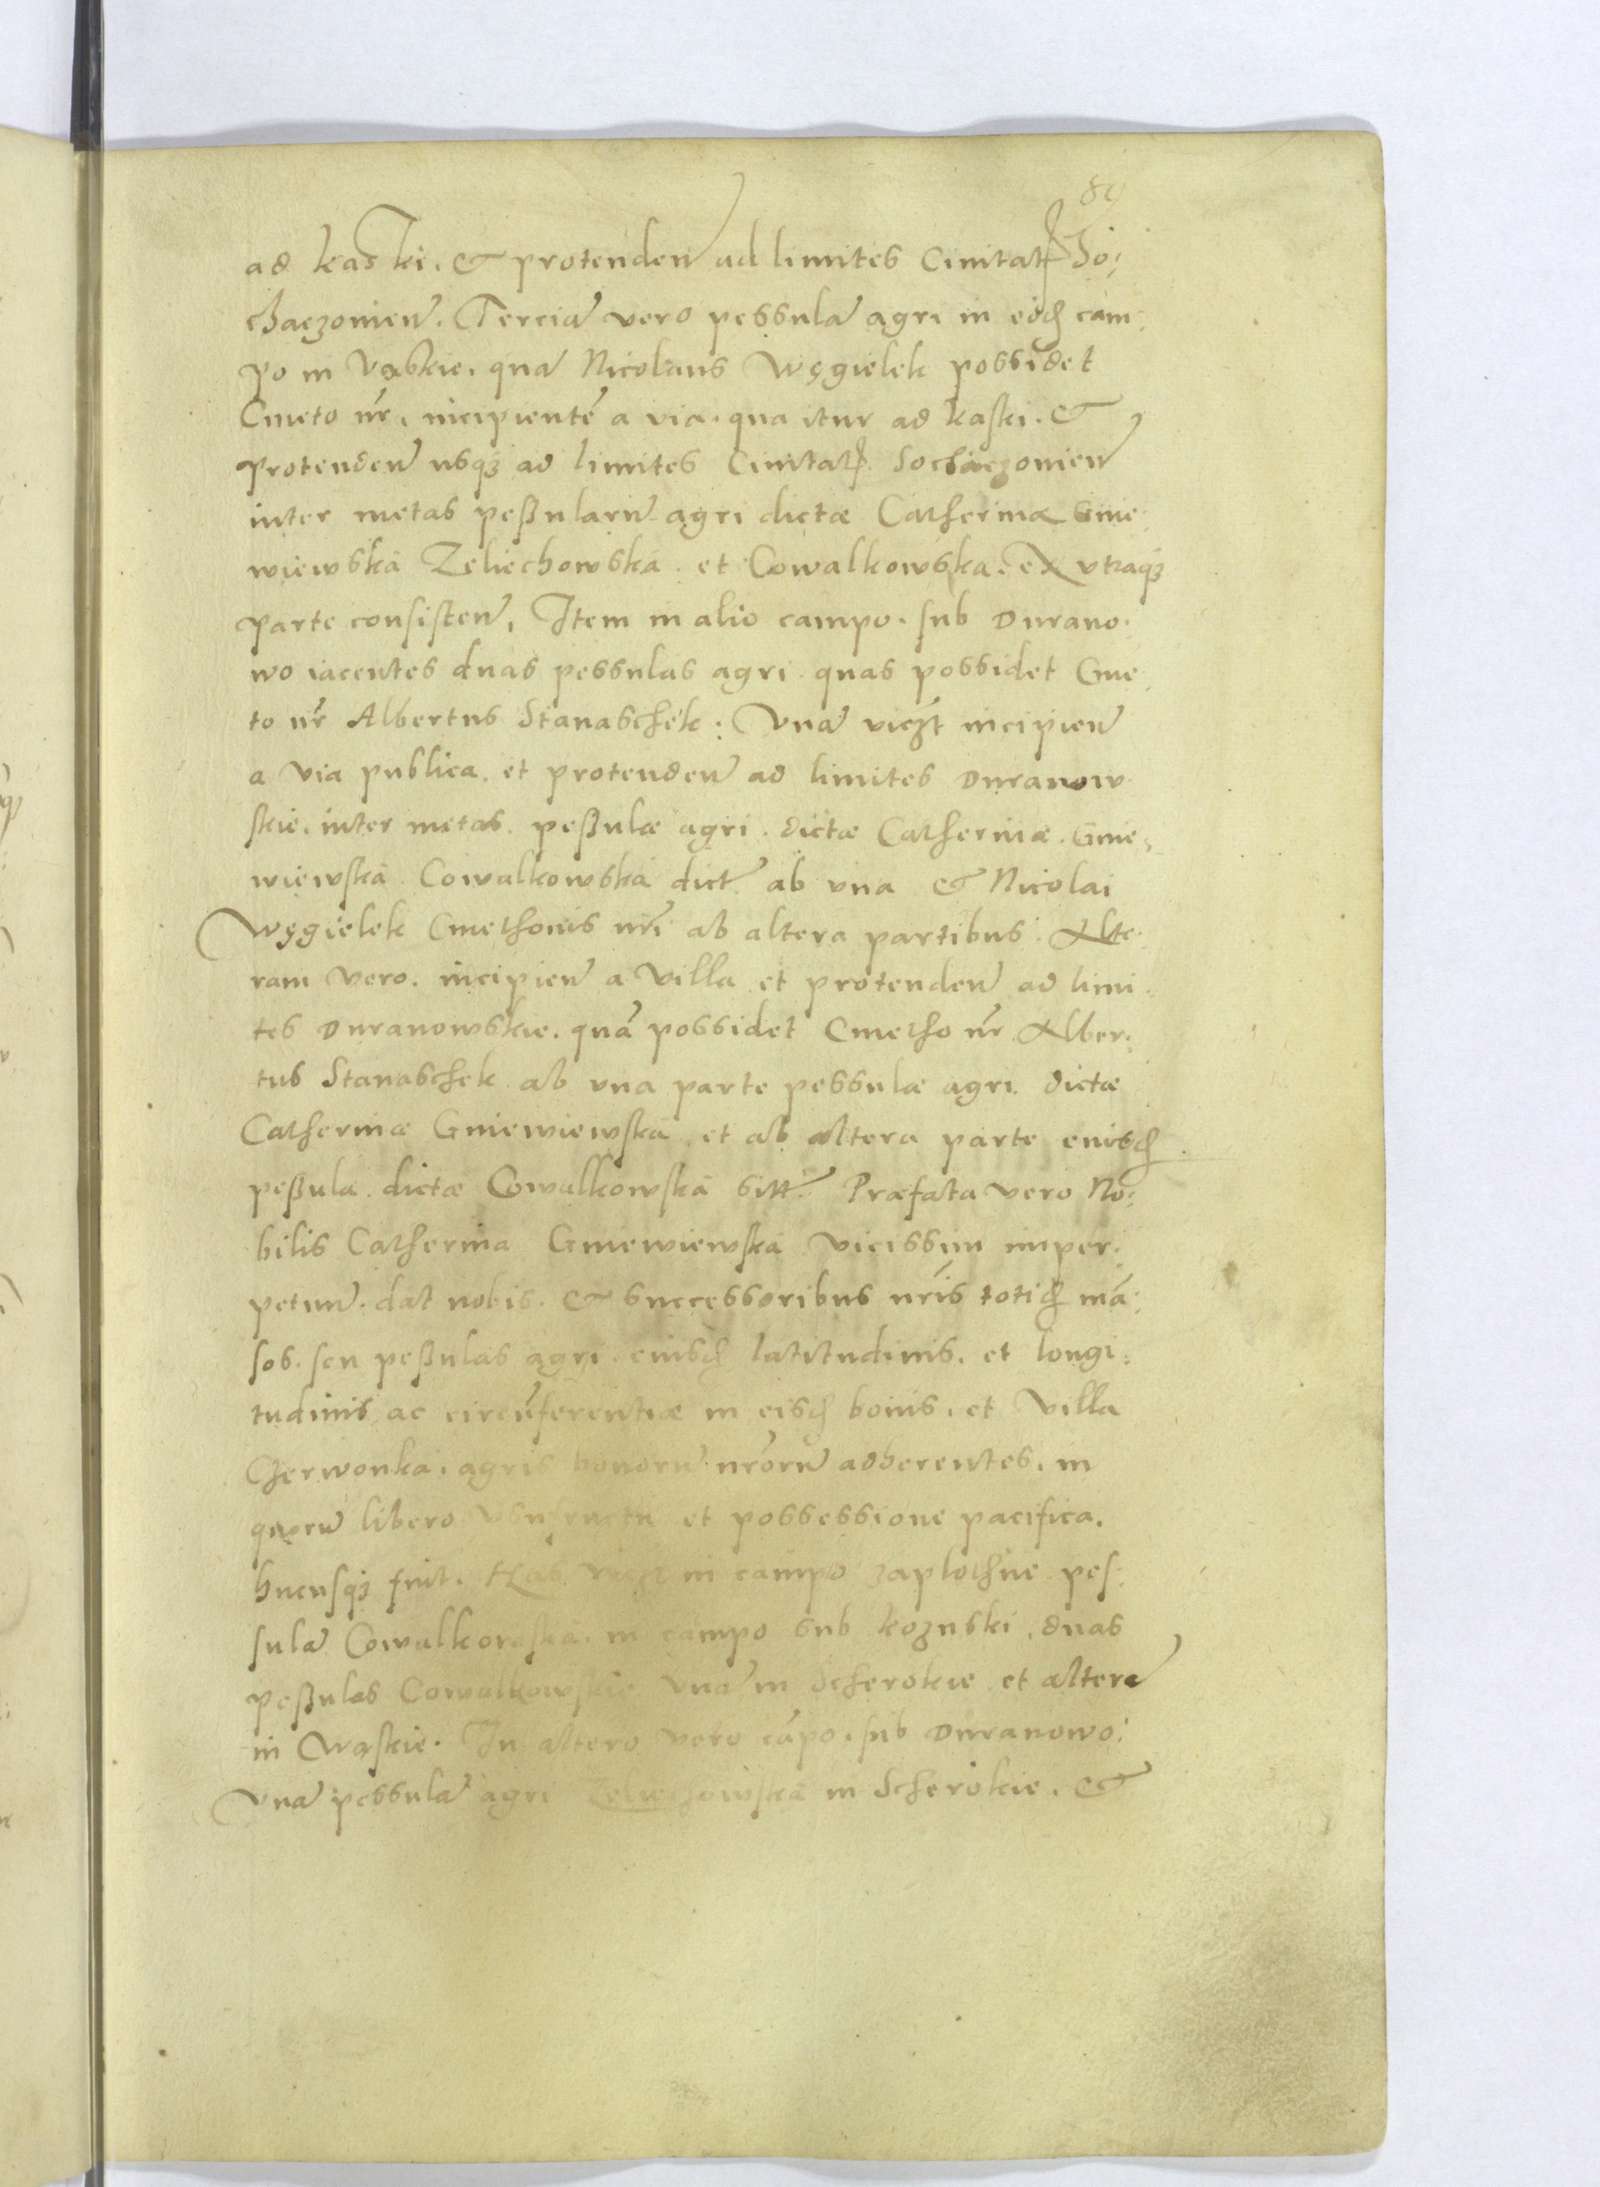 89
ad kaski. & protenden̄ ad limites Ciuitatꝭ So:
chaczouien̄. Terciā vero pessulā agri in eodꝫ cam:
po in Vąskie. quā Nicolaus Węgielek possidet
Cmeto nr̄. incipientē a via. qua itur ad kaski. &
protenden̄ usqꝫ ad limites Ciuitatꝭ. Sochaczouien̄
inter metas peßularū agri dictæ Catherinæ Gnie:
wiewska Zeliechowska. et Cowalkowska. ex vtraqꝫ
parte consisten̄. Item in alio campo. sub Duranо:
wo iacentes duas pessulas agri. quas possidet Cme:
to nr̄ Albertus Stanaschek: Vnā viczt̄ incipien̄
a via publica. et protenden̄ ad limites Duranow:
skie. inter metas. peßulæ agri. dictæ Catherinæ. Gnie:
wiewska Cowalkowska dict̄ ab vna & Nicolai
Węgielek Cmethonis nr̄i ab altera partibus. Alte:
ram vero. incipien̄ a villa et protenden̄ ad limi:
tes Duranowskie. quā possidet Cmetho nr̄ Alber:
tus Stanaschek ab vna parte pessulæ agri dictæ
Catherinæ Gniewiewska. et ab altera parte euisdꝫ
peßula. dictæ Cowalkowska sitt̄. Præfata vero No:
bilis Catherina Gniewiewska vicissim imper:
petuū. dat nobis. & successoribus nr̄is totidꝫ mā:
sos. seu peßulas agri. euisdꝫ latitudinis. et longi:
tudinis ac circūferentiæ in eisdꝫ bonis. et villa
Czerwonka. agris bonorū nr̄orū adherentes. in
quorū libero vsufructu et possessione pacifica.
hucusqꝫ fuit. Has viczt̄ in campo zaplothne pes:
sulā Cowalkowska. in campo sub kozuski. duas
peßulas Cowalkowskie Vnā in Scherokie et alterā
in Wąskie. In altero vero cāpo. sub Duranowo:
Vnā pessulā agri Zeliechowska in Scherokie. &